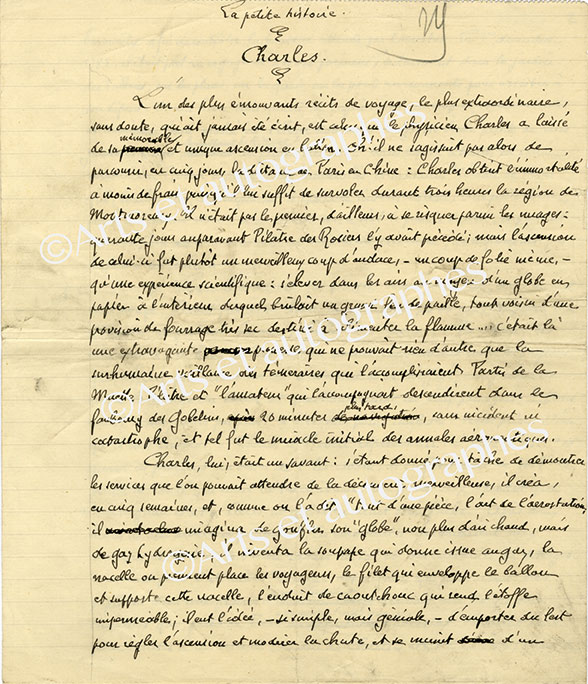 La petite histoire.
24
Charles.
L'un des plus émouvants récits de voyage, le plus extraordinaire,
sans doute, qui ait jamais été écrit, est celui que le physicien Charles a laissé
de sa mémorable et unique ascension en ballon. Oh! il ne s'agissait pas alors de
parcourir, en cinq jours, la distance de Paris en Chine : Charles obtint l'immortalité
à moins de frais puisqu'il lui suffit de survoler durant trois heures la région de
Montmorency. Il n'était pas le premier, d'ailleurs, à se risquer parmi les nuages :
quarante jours auparavant Pilâtre des Rosiers l'y avait précédé ; mais l'ascension
de celui-ci fut plutôt un merveilleux coup d'audace, – un coup de folie même, –
qu'une expérience scientifique : s'élever dans les airs au moyen d'un globe en
papier à l'intérieur duquel brûlait un grand feu de paille, tout voisin d'une
provision de fourrage très sec destiné à alimenter la flamme... c'était là
une extravagante prouesse qui ne pouvait rien d'autre que la
surhumaine vaillance des téméraires qui l'accomplirent. Partis de la
Muette, Pilâtre et "l'amateur" qui l'accompagnait descendirent dans le
faubourg des Gobelins, 20 minutes plus tard, sans incident ni
catastrophe ; et tel fut le miracle initial des annales aéronautiques.
Charles, lui, était un savant : s'étant donné pour tâche de démontrer
les services que l'on pouvait attendre de la découverte merveilleuse, il créa,
en cinq semaines, et, comme on l'a dit "tout d'une pièce, l'art de l'aérostation,
il imagina de gonfler son "globe", non plus d'air chaud, mais
de gaz hydrogène ; il inventa la soupape qui donne issue au gaz, la
nacelle où prennent place les voyageurs, le filet qui enveloppe le ballon
et supporte cette nacelle, l'enduit de caoutchouc qui rend l'étoffe
imperméable ; il eut l'idée, – si simple, mais géniale, – d'emporter du lest
pour régler l'ascension et modérer la chute, et se munit d'un
©Arts et autographes
©Arts et autographes
©Arts et autographes
©Arts et autographes